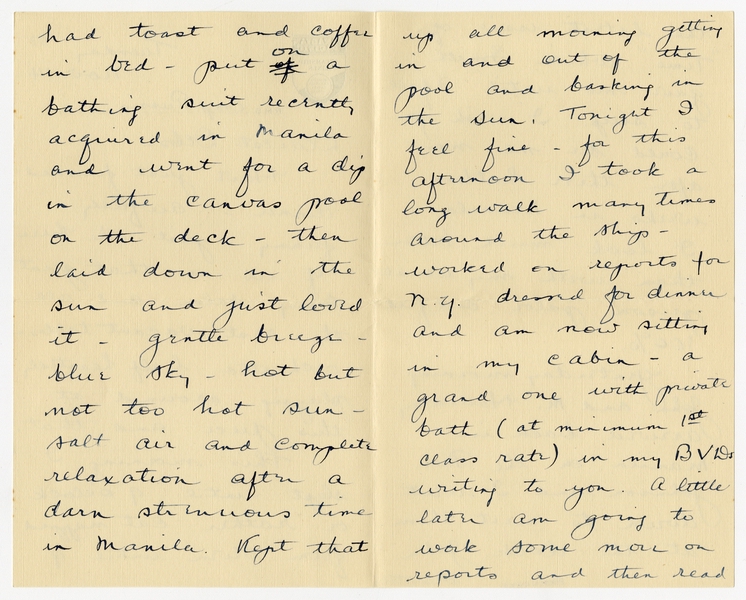 had toast and coffee
in bed - put of on a
bathing suit recently
acquired in Manila
and went for a dip
in the canvas pool
on the deck - then
laid down in the
sun and just loved
it - gentle breeze -
blue sky - hot but
not too hot sun -
salt air and complete
relaxation after a
darn strenuous time
in Manila. Kept that
up all morning getting
in and out of the
pool and basking in
the sun. Tonight I
feel fine - for this
afternoon I took a
long walk many times
around the ship -
worked on reports for
N.Y. dressed for dinner
and am now sitting
in my cabin - a
grand one with private
bath (at minimum 1st
class rate) in my BVDs
writing to you. A little
later am going to
work some more on
reports and then read